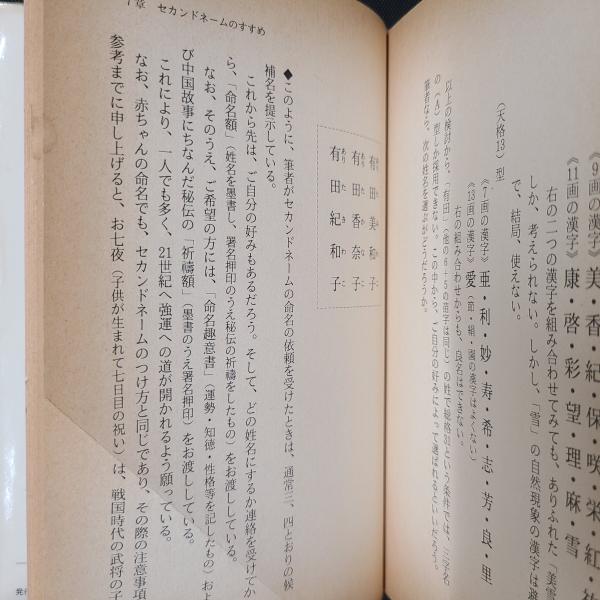 《9画の漢字》美・香・紀・保・咲・栄・紅・
《11画の漢字》康・啓・彩・望・理・麻・雪
右の二つの漢字を組み合わせてみても、ありふれた「美雪
しか、考えられない。しかし、「雪」の自然現象の漢字は避
で、結局、使えない。
(天格13)型
《7画の漢字》亜・利・妙・寿・希・志・芳・良・里
《13画の漢字》愛(節・絹・園の漢字はよくない)
右の組み合わせからも、良名はできない。
以上の検討から、「有田」(他の6+5の苗字は同じ)の姓で総格31という条件では、三字名
の(A)型しか採用できない。この中から、ご自分の好みによって選ばれるといいだろう。
筆者なら、次の姓名を選ぶがどうだろうか。
有田美和子
有田香奈子
有田紀和子
ありたきわこ
1章 セカンドネームのすすめ
◆このように、筆者がセカンドネームの命名の依頼を受けたときは、通常三、四とおりの候
補名を提示している。
これから先は、ご自分の好みもあるだろう。そして、どの姓名にするか連絡を受けてか
ら、「命名額」(姓名を墨書し、署名押印のうえ秘伝の祈禱をしたもの)をお渡ししている。
なお、そのうえ、ご希望の方には、「命名趣意書」(運勢・知徳・性格等を記したもの)およ
び中国故事にちなんだ秘伝の「祈禱額」(墨書のうえ署名押印)をお渡ししている。
これにより、一人でも多く、21世紀へ強運への道が開かれるよう願っている。
なお、赤ちゃんの命名でも、セカンドネームのつけ方と同じであり、その際の注意事項
参考までに申し上げると、お七夜(子供が生まれて七日目の祝い)は、戦国時代の武将の子
発行